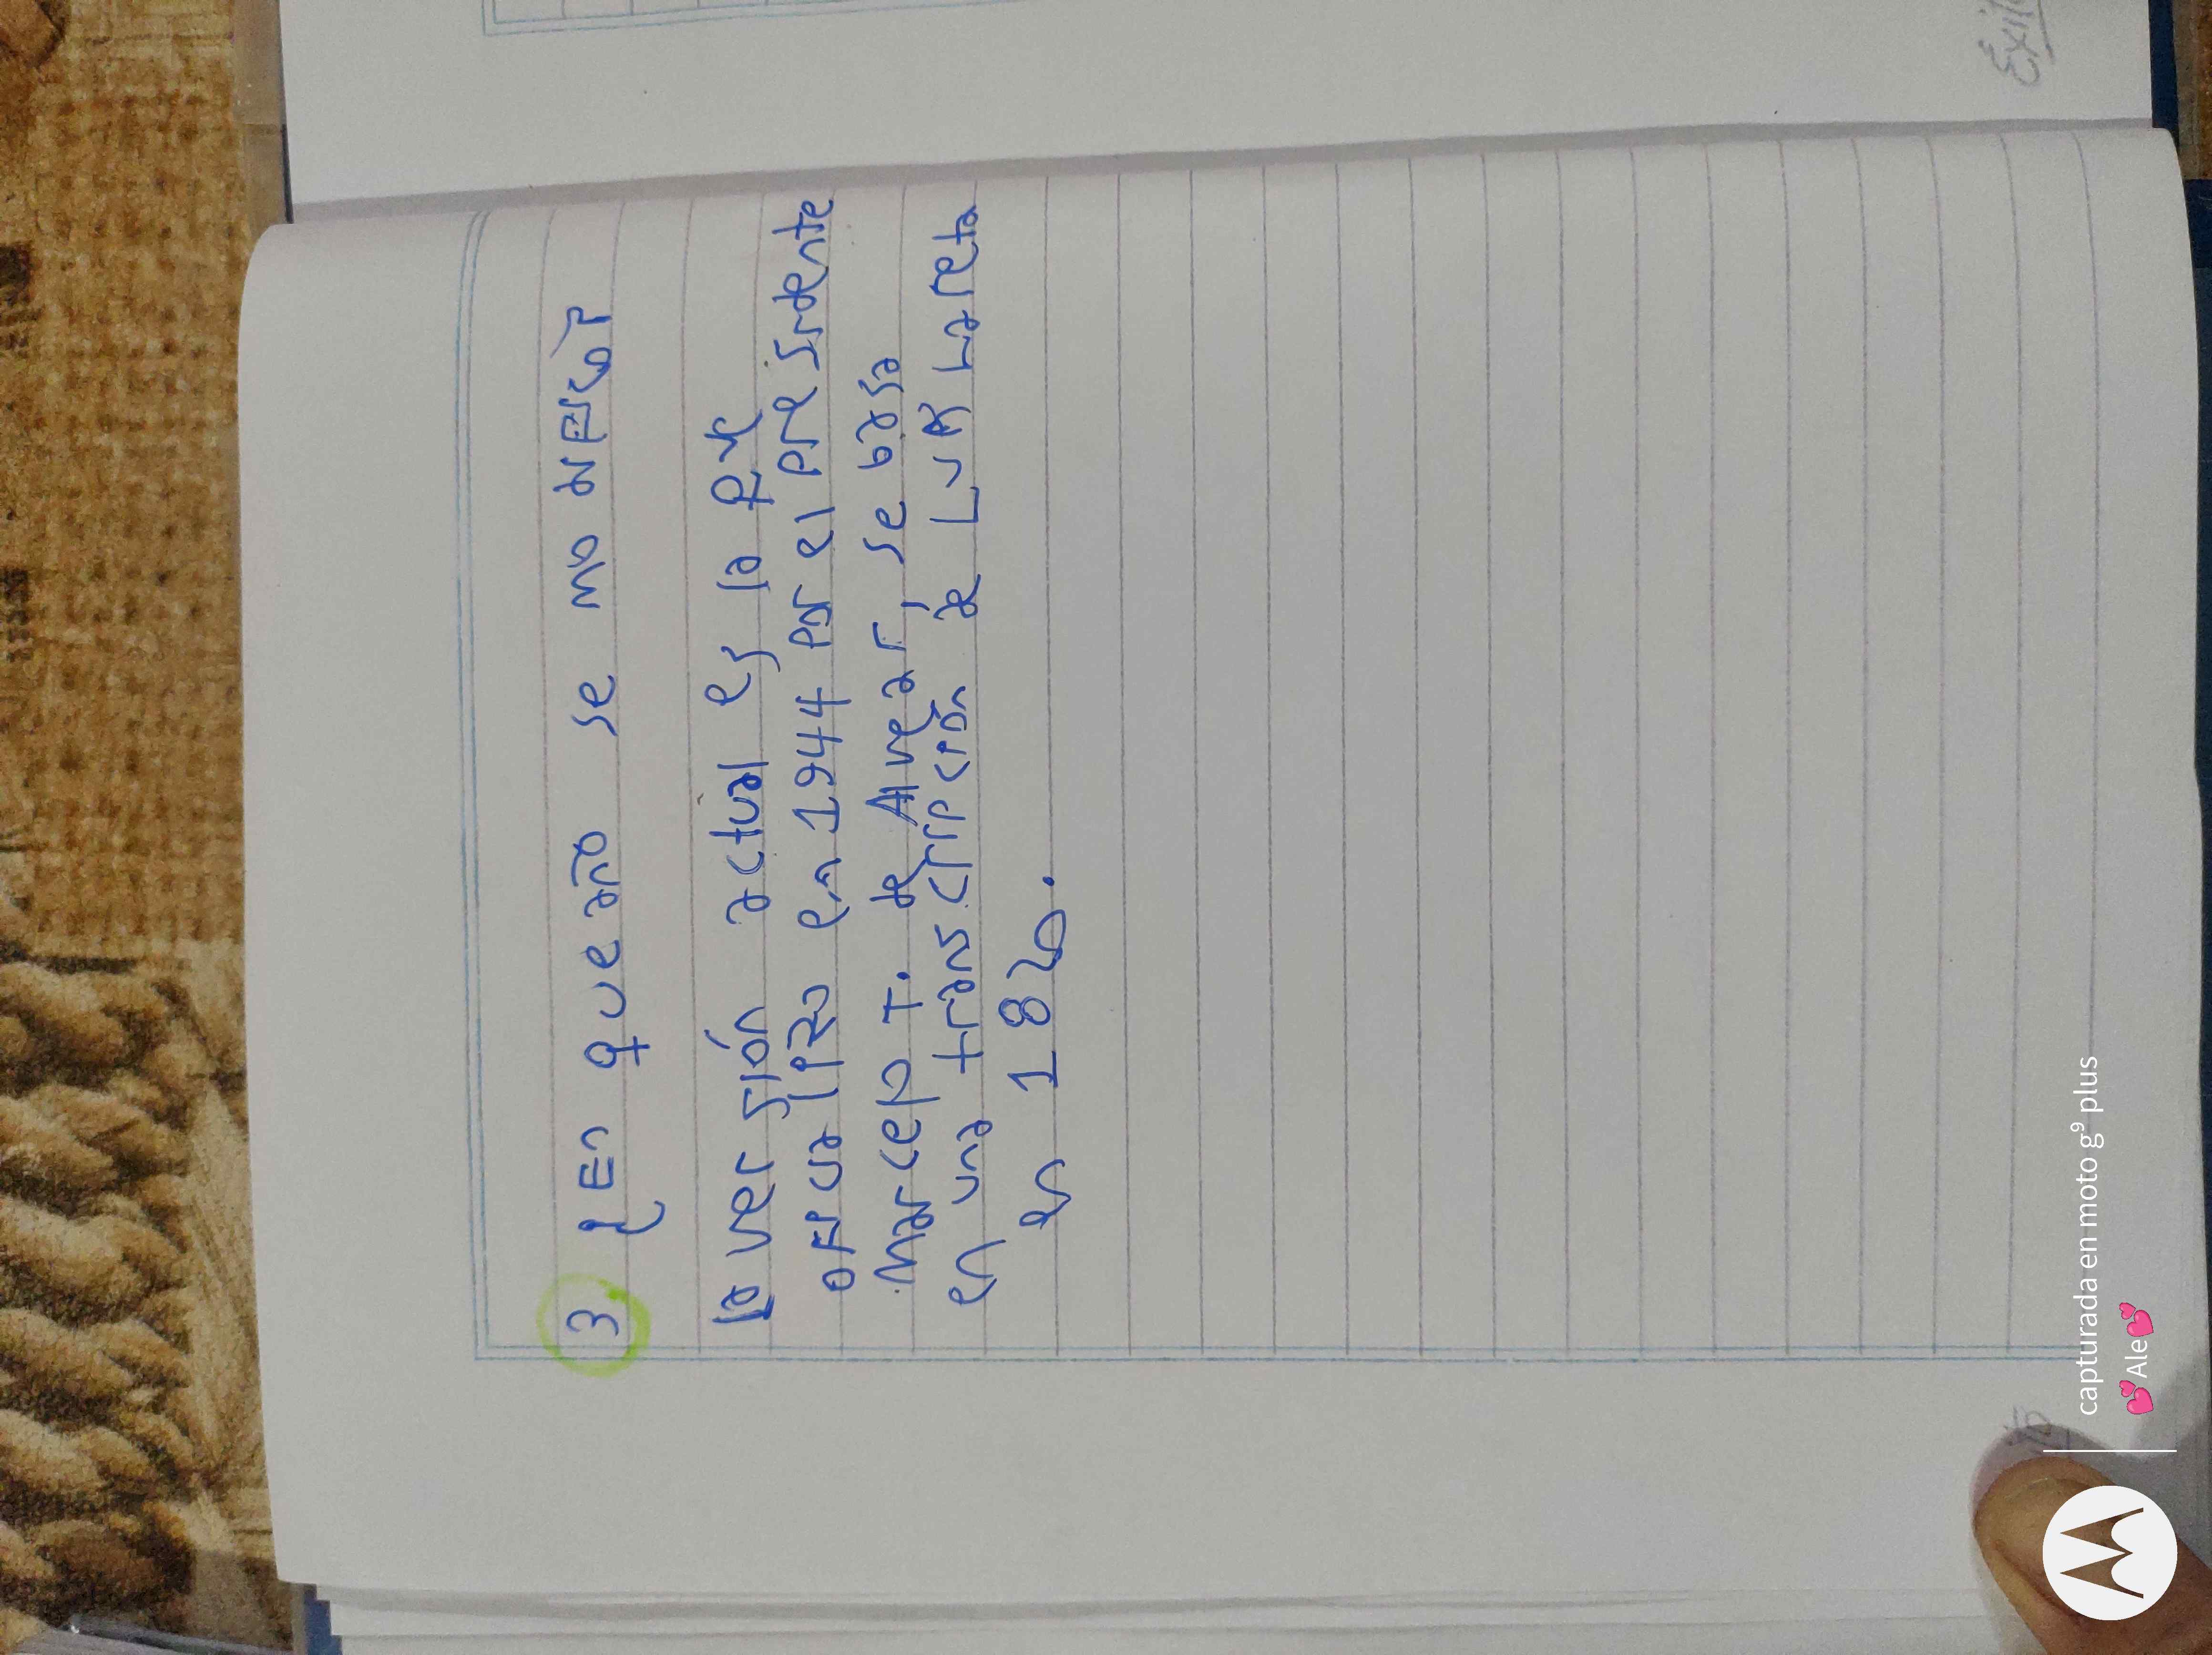 3 ¿En que año se modificó?
la versión actual es la que
oficializo en 1944 por el presidente
Marcelo T. de Alvear, se basa
en una transcripción de Luis
en 1860.
Exito
capturada en moto g⁹ plus
💕Ale💕